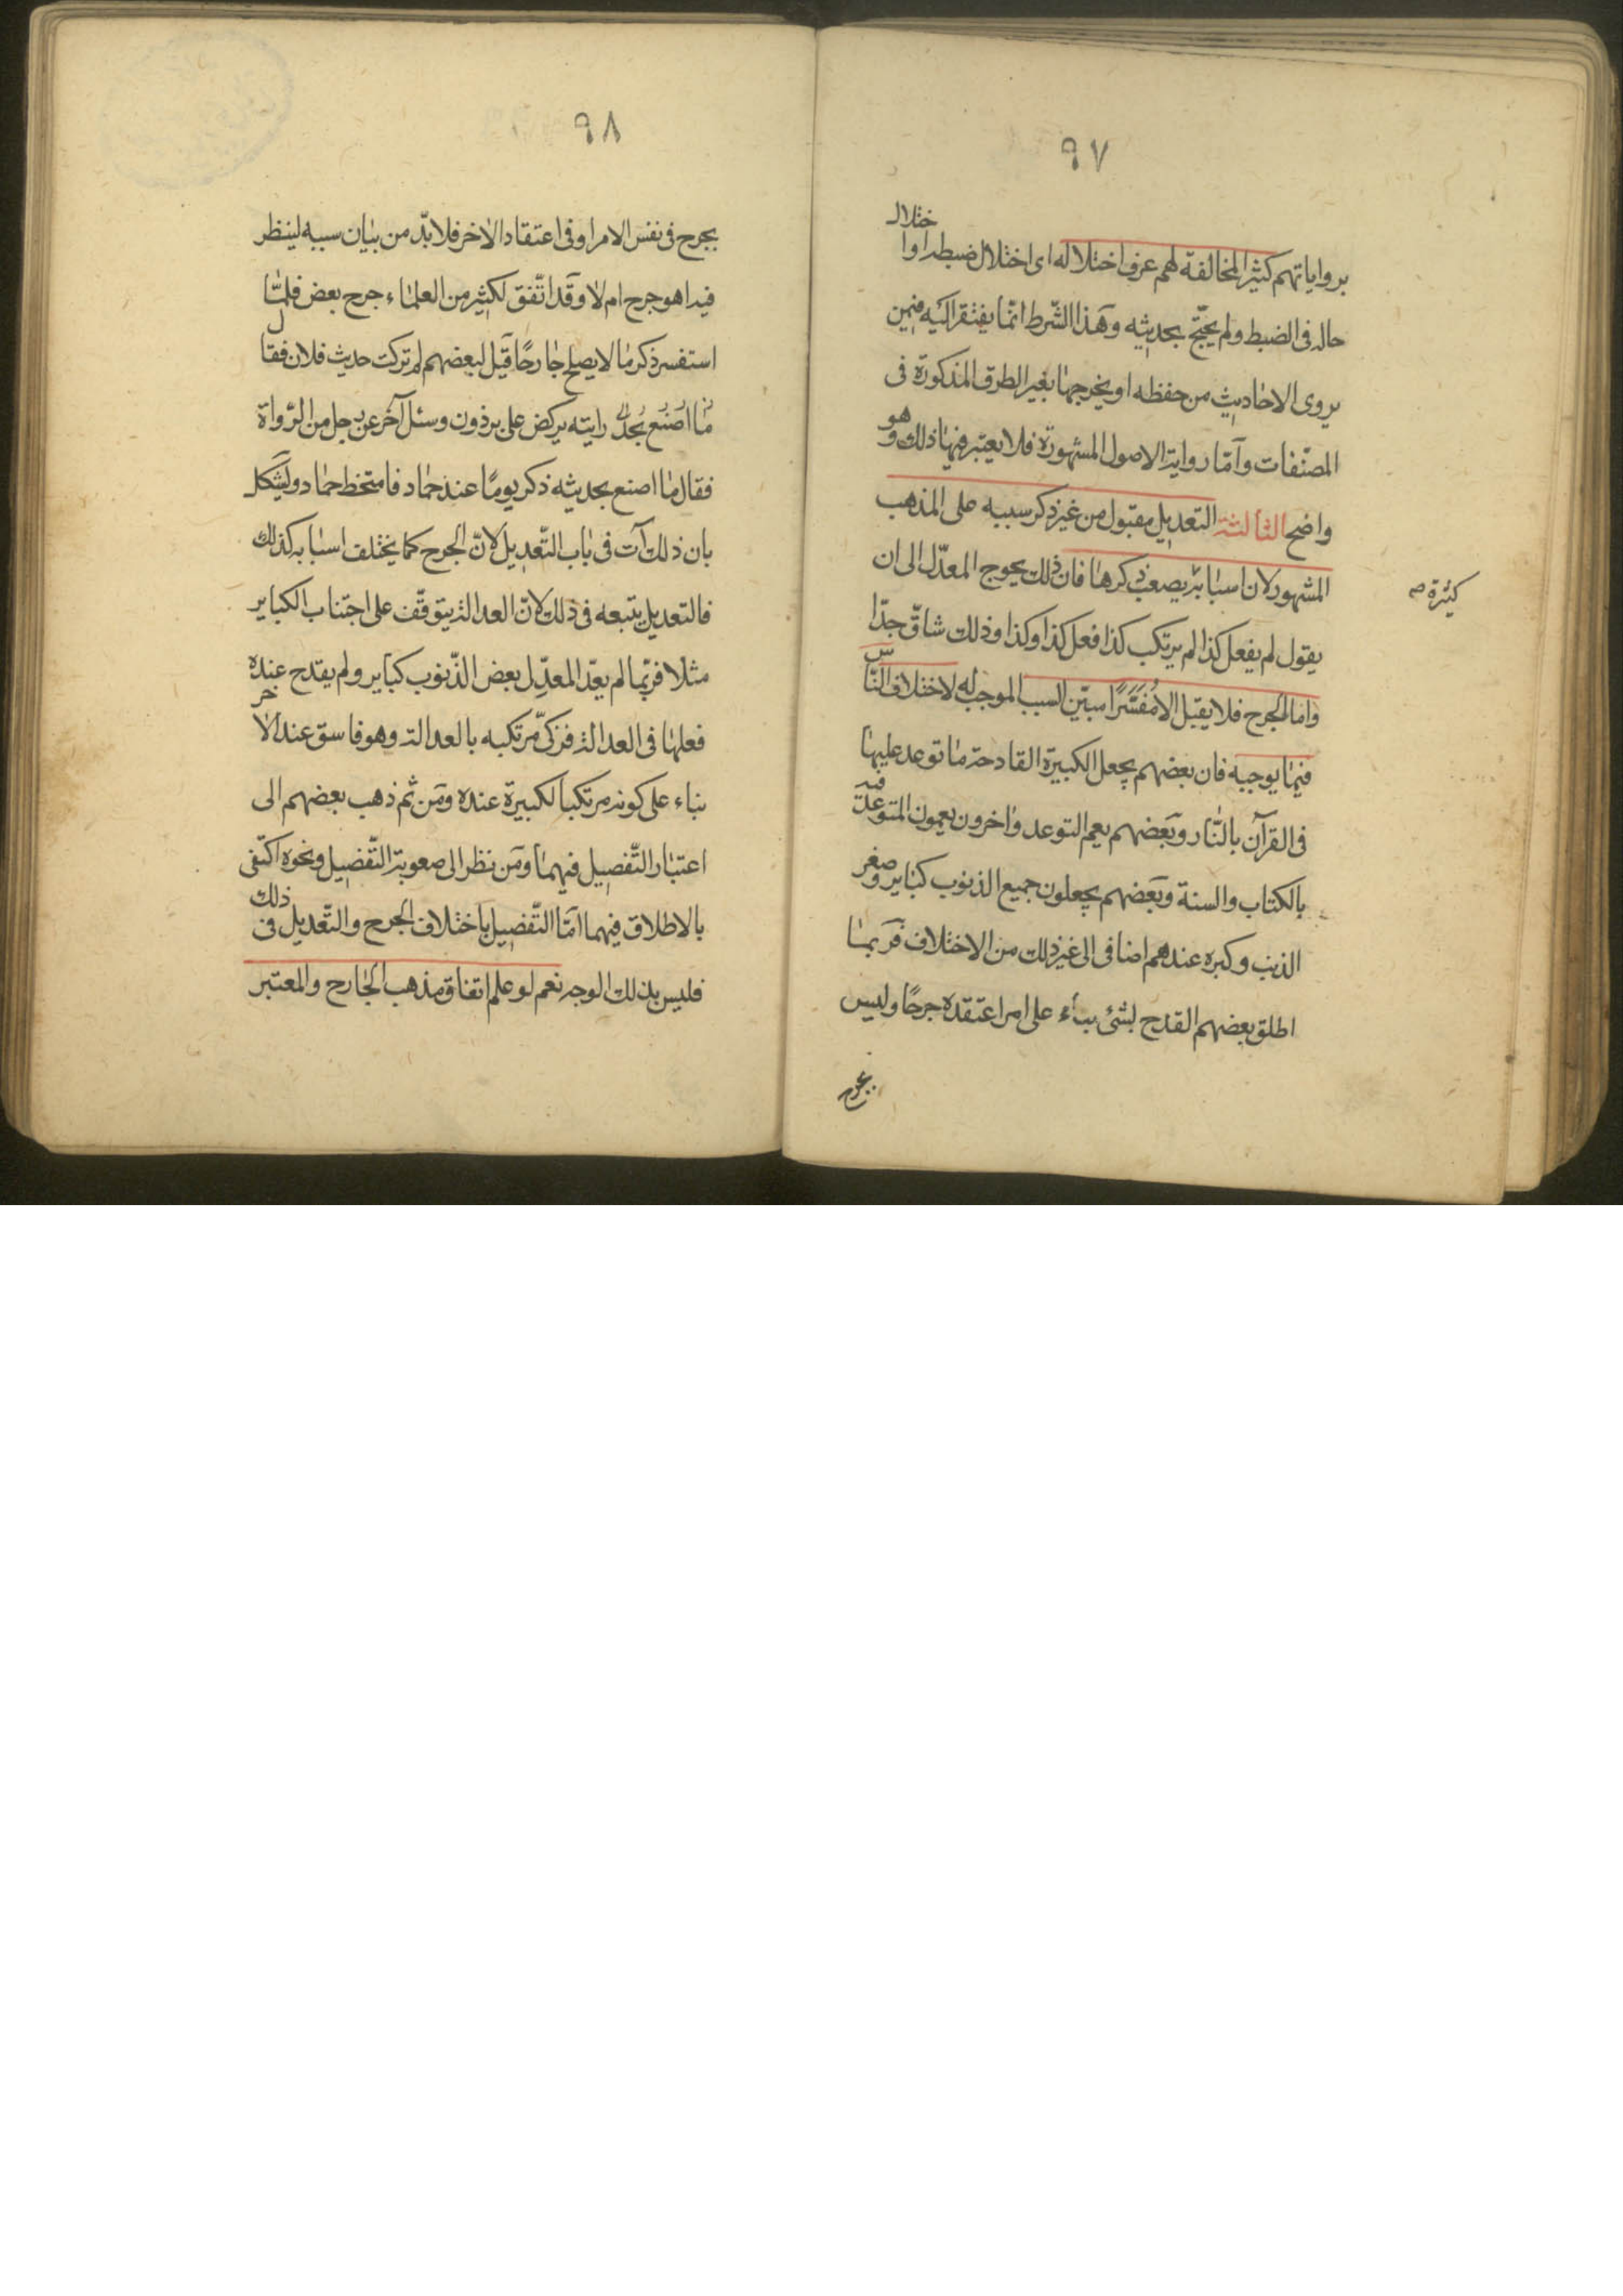 ٩٧
برواياتهم كثير المخالفة لهم عرف اختلاله اى اختلال ضبطه او اختلال
حاله فى الضبط ولم يحتج بحديثه وهذا الشرط انما يفتقر اليه فيمن
يروى الاحاديث من حفظه او يخرجها بغير الطرق المذكورة فى
المصنفات وآما رواية الاصول المشهورة فلا يعتبر فيها ذلك وهو
واضح الثالثة التعديل مقبول من غير ذكر سببه على المذهب
المشهور لان اسبابه يصعب ذكرها فان ذلك يحوج المعدّل الى ان
كثيرة
يقول لم يفعل كذا لم يرتكب كذا فعل كذا وكذا وذلك شاقّ جدّا
واما الجرح فلا يقبل الا مُفَسَّرًا مبيّن السبب الموجب له لاختلاف النّاس
فيما يوجبه فان بعضهم يجعل الكبيرة القادحة ما توعد عليها
فى القرآن بالنّار وبعضهم يعم التوعد واخرون يعمون المتوعد فيه
بالكتاب والسنة وبعضهم يجعلون جميع الذنوب كباير وصغر
الذنب وكبره عندهم اضافى الى غير ذلك من الاختلاف فربما
اطلق بعضهم القدح بشئ بناء على امر اعتقده جرحًا وليس
بجرح
٩٨
بجرح فى نفس الامر او فى اعتقاد الاخر فلا بدّ من بيان سببه لينظر
فيه اهو جرح ام لا وقد اتّفق لكثير من العلماء جرح بعض فلمّا
استفسر ذكر ما لا يصلح جارحًا قيل لبعضهم لم تركت حديث فلان فقال
ما اصنع بحديثه رايته يركض على برذون وسئل آخر عن رجل من الرّواة
فقال ما اصنع بحديثه ذكر يومًا عند حماد فامتخط حماد ويشكل
بان ذلك آت فى باب التّعديل لانّ الجرح كما يختلف اسبابه كذلك
فالتعديل يتبعه فى ذلك لانّ العدالة يتوقّف على اجتناب الكباير
مثلا فربّما لم يعدّ المعدّل بعض الذّنوب كباير ولم يقدح عنده
فعلها فى العدالة فزكّى مرتكبه بالعدالة وهو فاسق عند الآخر
بناء على كونه مرتكبا لكبيرة عنده ومن ثم ذهب بعضهم الى
اعتبار التّفصيل فيهما ومن نظر الى صعوبة التّفصيل ونحوه اكتفى
بالاطلاق فيهما امّا التّفصيل باختلاف الجرح والتّعديل فى ذلك
فليس بذلك الوجه نعم لو علم اتفاق مذهب الجارح والمعتبر